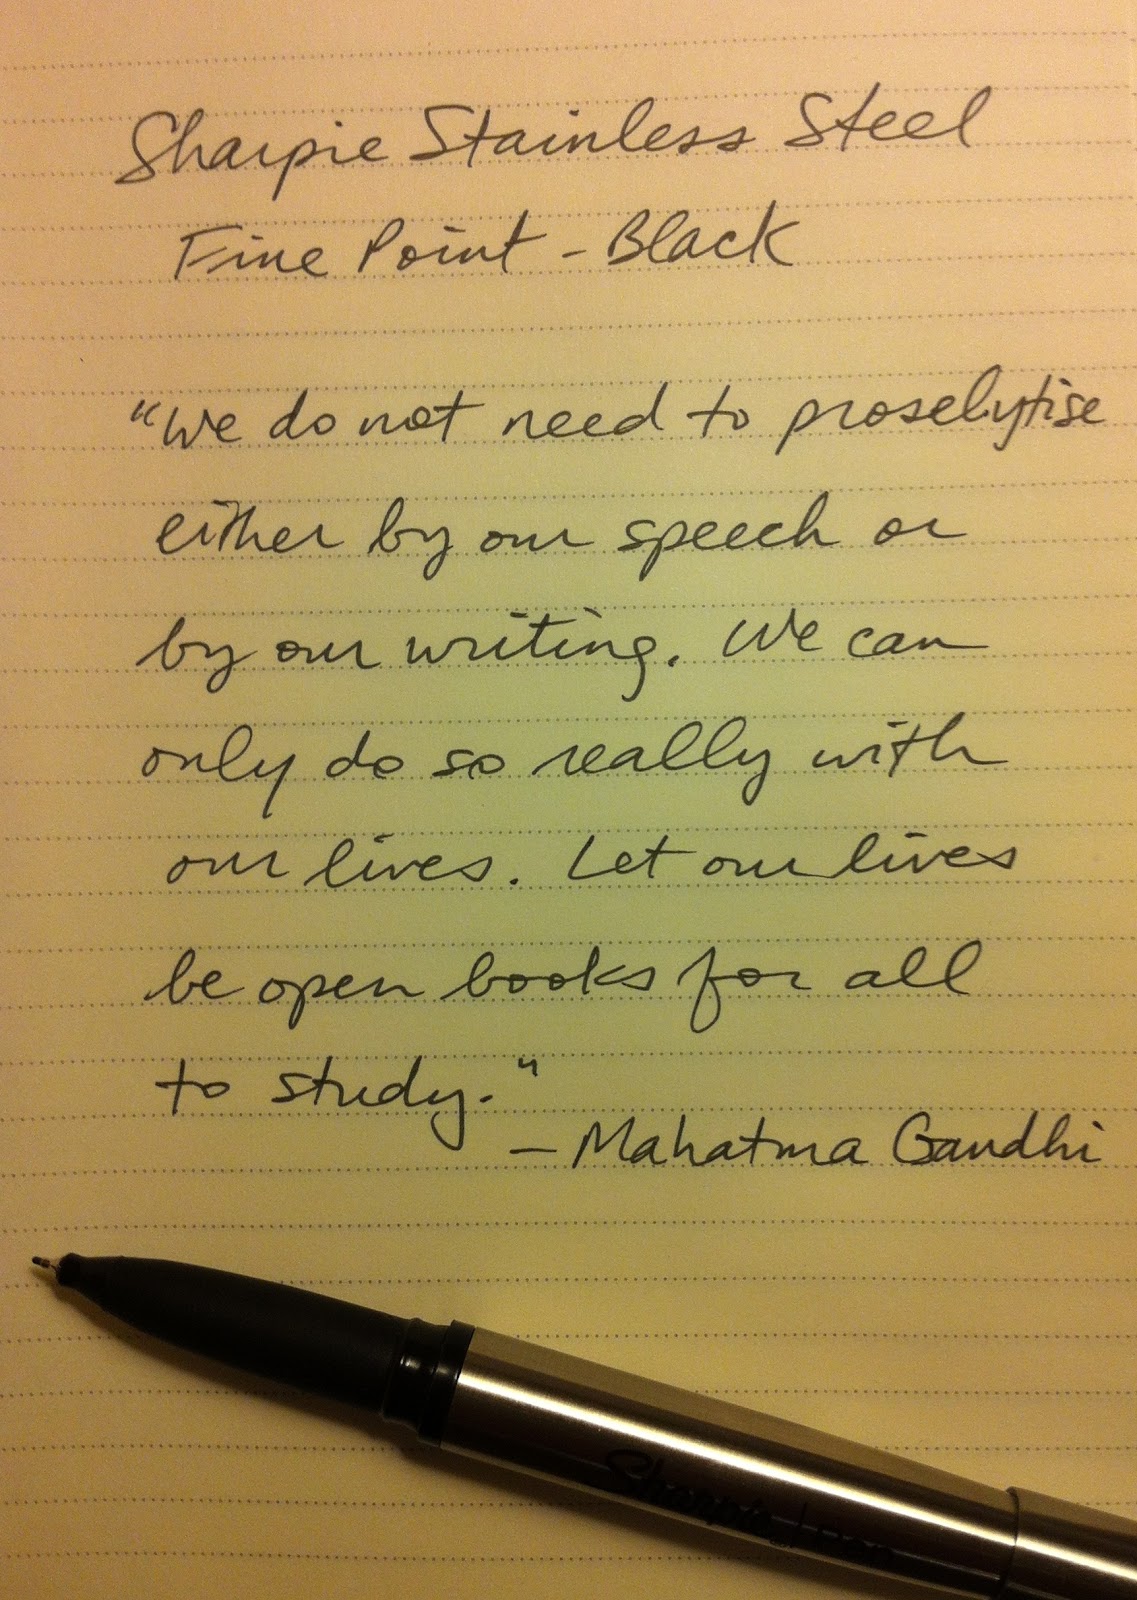 Sharpie Stainless Steel
Fine Point - Black
"We do not need to proselytise
either by our speech or
by our writing. We can
only do so really with
our lives. Let our lives
be open books for all
to study."
- Mahatma Gandhi
Sharpie